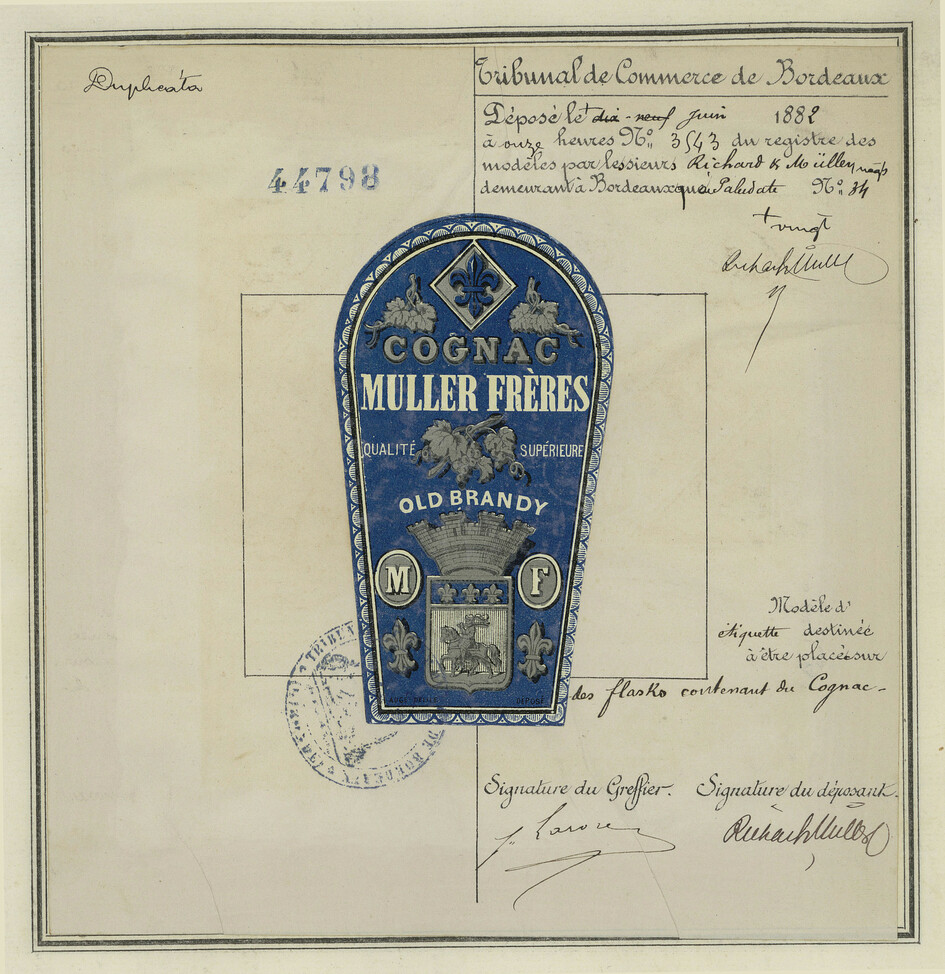 Duplicata
Tribunal de Commerce de Bordeaux
Déposé le + dix-neuf juin 1882
à onze heures No. 3543 du registre des
44798
modèles par lessieurs Richard & Müller
demeurant à Bordeaux quai Paludate No. 34
+ vingt
Richard Müller
COGNAC
MULLER FRÈRES
QUALITÉ SUPÉRIEURE
OLD BRANDY
M F
Modèle d'
étiquette destinée
à être placée sur
des flasks contenant du Cognac -
DÉPOSÉ
TRIBUN
DE BORDEAUX
Signature du Greffier. Signature du déposant.
Richard Müller